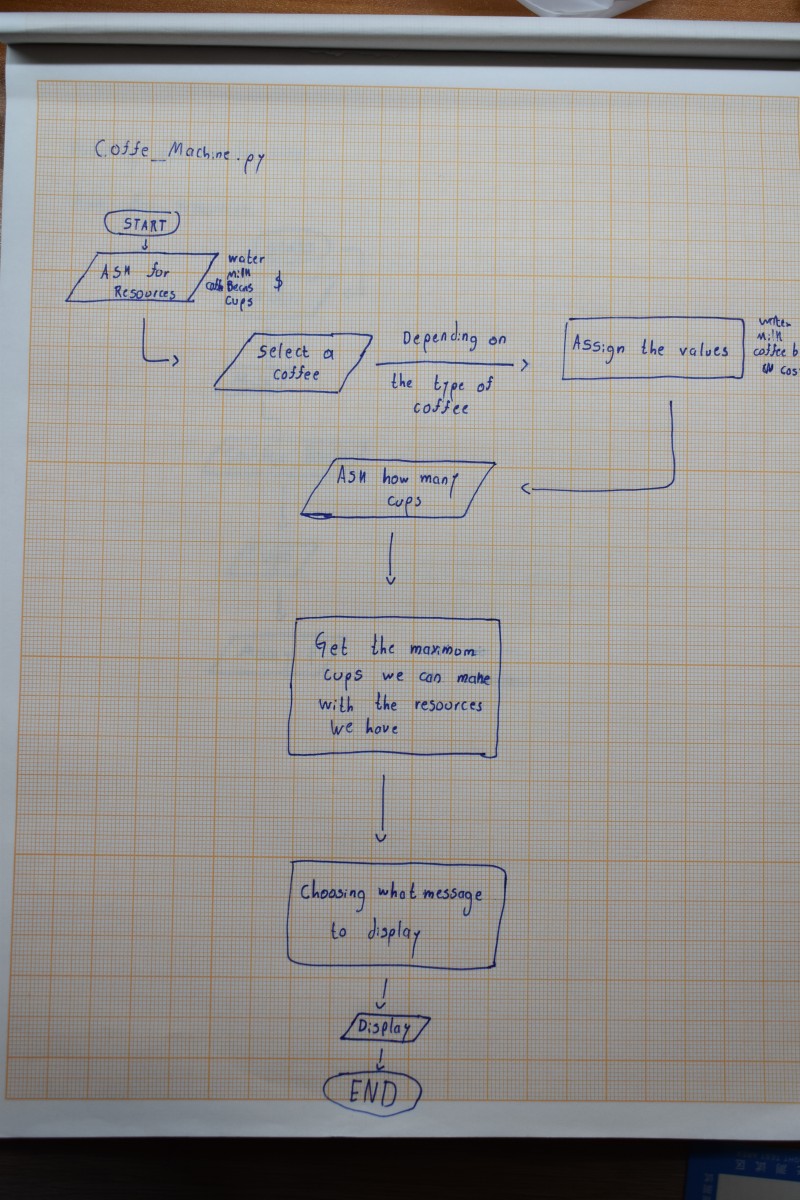 Coffe_Machine.py
START
Ask for
Resources
water
milk
Becns
cups
$
Select a
coffee
Depending on
the type of
coffee
Assign the values
water
milk
coffee b
cos
Ask how many
cups
Get the maximom
cups we can make
with the resources
we hove
Choosing what message
to display
Display
END